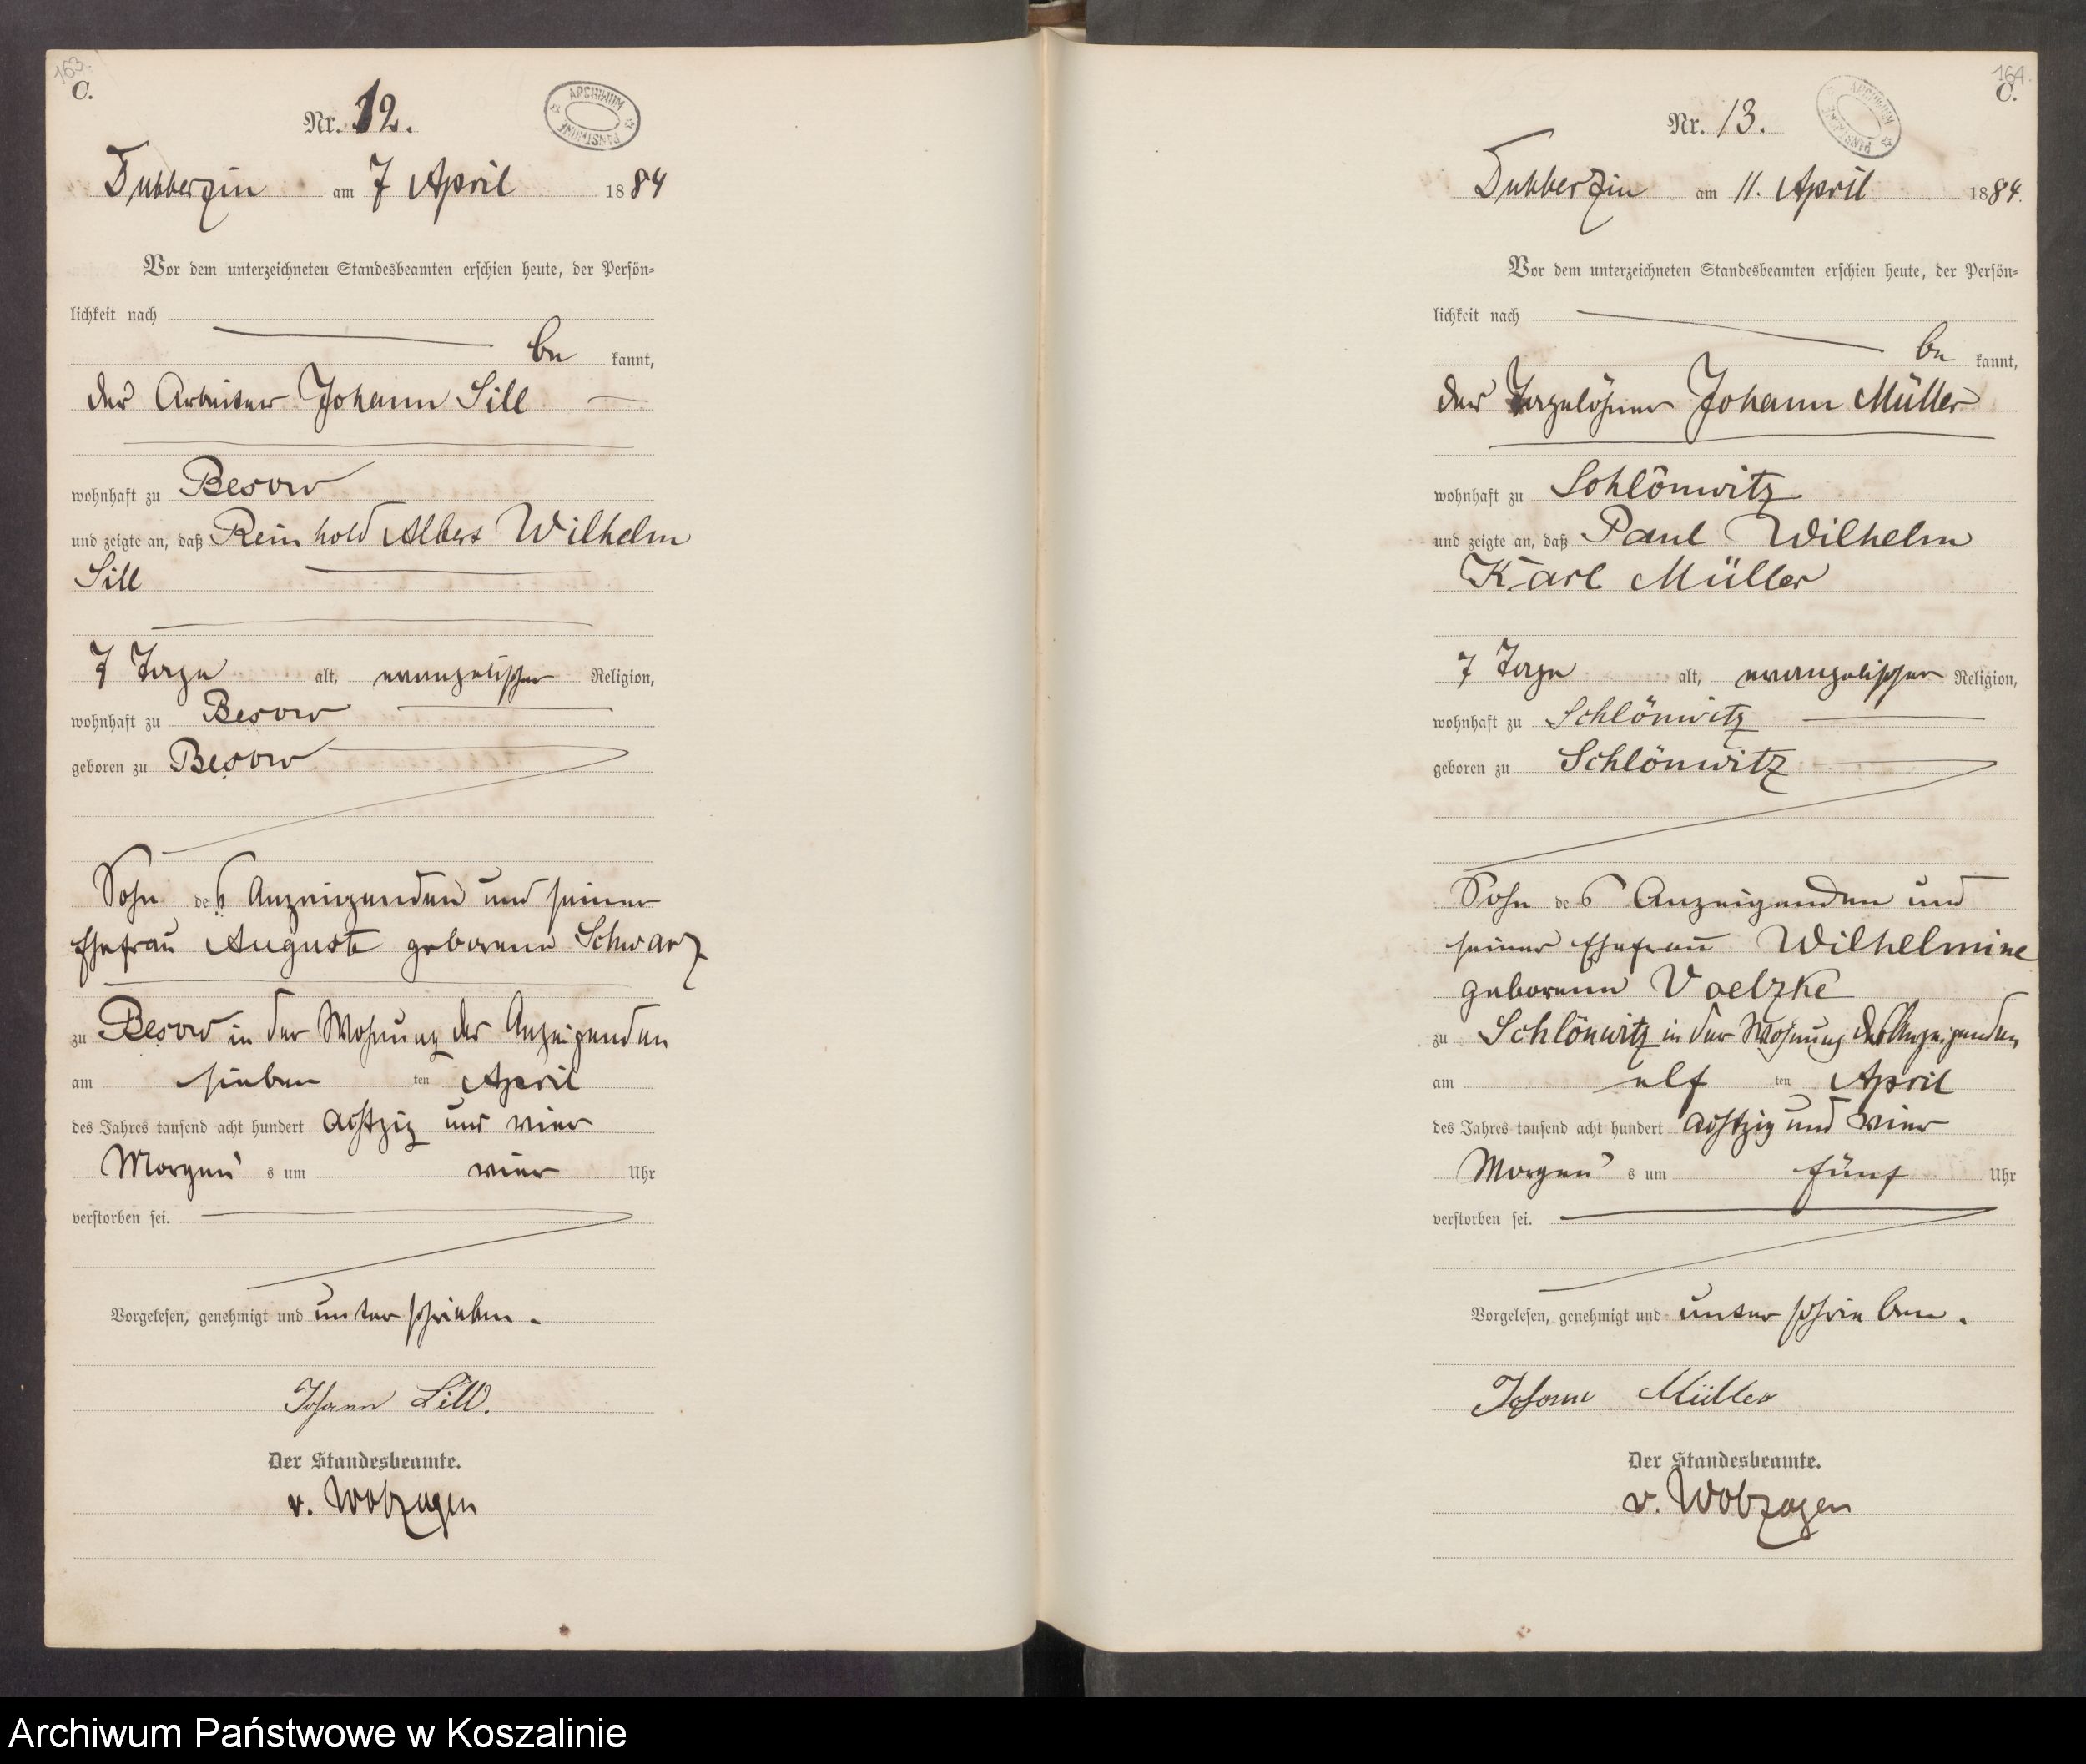 163.
C.
Nr. 12.
ARCHIWUM PAŃSTWOWE
Dubberzin am 7 April 1884
Vor dem unterzeichneten Standesbeamten erschien heute, der Persön-
lichkeit nach
be kannt,
der Arbeiter Johann Sill
wohnhaft zu Besow
und zeigte an, daß Reinhold Albert Wilhelm
Sill
7 Tage alt, evangelischer Religion,
wohnhaft zu Besow
geboren zu Besow
Sohn des Anzeigenden und seiner
Ehefrau Auguste geborene Schwarz
zu Besow in der Wohnung des Anzeigenden
am sieben ten April
des Jahres tausend acht hundert achtzig und vier
Morgens um vier Uhr
verstorben sei.
Vorgelesen, genehmigt und unterschrieben.
Johann Sill.
Der Standesbeamte.
164.
C.
Nr. 13.
ARCHIWUM PAŃSTWOWE
Dubberzin am 11. April 1884.
Vor dem unterzeichneten Standesbeamten erschien heute, der Persön-
lichkeit nach
be kannt,
der Tagelöhner Johann Müller
wohnhaft zu Schlönwitz
und zeigte an, daß Paul Wilhelm
Karl Müller
7 Tage alt, evangelischer Religion,
wohnhaft zu Schlönwitz
geboren zu Schlönwitz
Sohn des Anzeigenden und
seiner Ehefrau Wilhelmine
geborene Voelzke
zu Schlönwitz in der Wohnung des Anzeigenden
am elf ten April
des Jahres tausend acht hundert achtzig und vier
Morgens um fünf Uhr
verstorben sei.
Vorgelesen, genehmigt und unterschrieben.
Johann Müller
Der Standesbeamte.
Archiwum Państwowe w Koszalinie